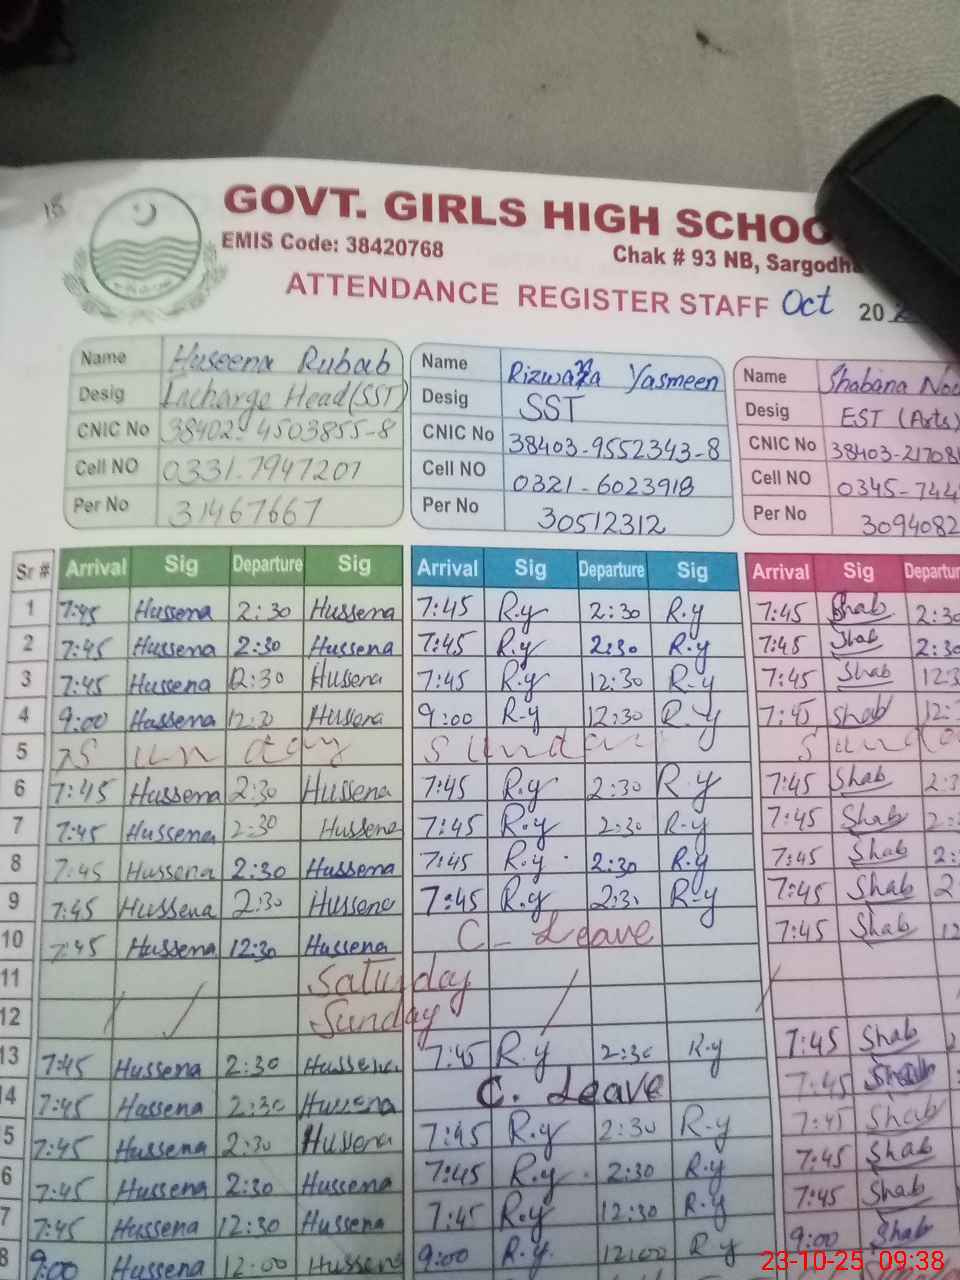 18
GOVT. GIRLS HIGH SCHOO
EMIS Code: 38420768
Chak # 93 NB, Sargodh
ATTENDANCE REGISTER STAFF Oct 20
Name Huseena Rubab Name Rizwana Yasmeen Name Shabana
Desig Incharge Head (SST) Desig SST Desig EST (Arts)
CNIC No 38402-4503855-8 CNIC No 38403-9552343-8 CNIC No 38403-21708
Cell NO 0331-7947207 Cell NO 0321-6023918 Cell NO 0345-744
Per No 31467667 Per No 30512312 Per No 3094082
Sr # Arrival Sig Departure Sig Arrival Sig Departure Sig Arrival Sig Departur
1 7:45 Hussena 2:30 Hussena 7:45 R.y 2:30 R.y 7:45 Shab 2:30
2 7:45 Hussena 2:30 Hussena 7:45 R.y 2:30 R.y 7:45 Shab 2:30
3 7:45 Hussena 12:30 Hussena 7:45 R.y 12:30 R-y 7:45 Shab 12:3
4 9:00 Hassena 12:30 Hussena 9:00 R-y 12:30 R.y 7:45 Shab 12:
5 Sunday Sunday Sunda
6 7:45 Hussena 2:30 Hussena 7:45 R.y 2:30 R.y 7:45 Shab 2:3
7 7:45 Hussena 2:30 Hussena 7:45 R.y 2:30 R-y 7:45 Shab 2:
8 7:45 Hussena 2:30 Hussena 7:45 R.y 2:30 R.y 7:45 Shab 2:
9 7:45 Hussena 2:30 Hussena 7:45 R.y 2:30 R-y 7:45 Shab 2
10 7:45 Hussena 12:30 Hussena C-Leave 7:45 Shab 12
11 Saturday
12 Sunday
13 7:45 Hussena 2:30 Hussena 7:45 R.y 2:30 R.y 7:45 Shab 2
14 7:45 Hussena 2:30 Hussena C. Leave 7:45 Shab
5 7:45 Hussena 2:30 Hussena 7:45 R.y 2:30 R-y 7:45 Shab
6 7:45 Hussena 2:30 Hussena 7:45 R.y 2:30 R.y 7:45 Shab
7 7:45 Hussena 12:30 Hussena 7:45 R.y 12:30 R.y 7:45 Shab
8 9:00 Hussena 12:00 Hussena 9:00 R.y 12:00 R y 9:00 Shab
23-10-25 09:38